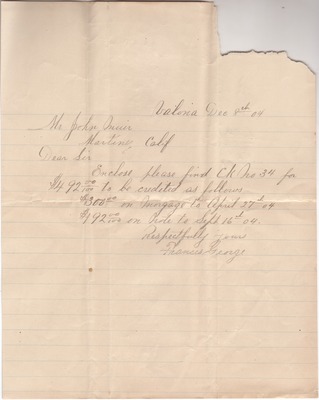 Valona Dec 8th 04
Mr John Muir
Martinez, Calf
Dear Sir
Enclose please find Ck No 34 for
$492 00/100 to be credited as follows
$300 00 on Morgage to April 27th 04
$192 00/100 on Note to Sept 16th 04.
Respectfully yours
Francis George